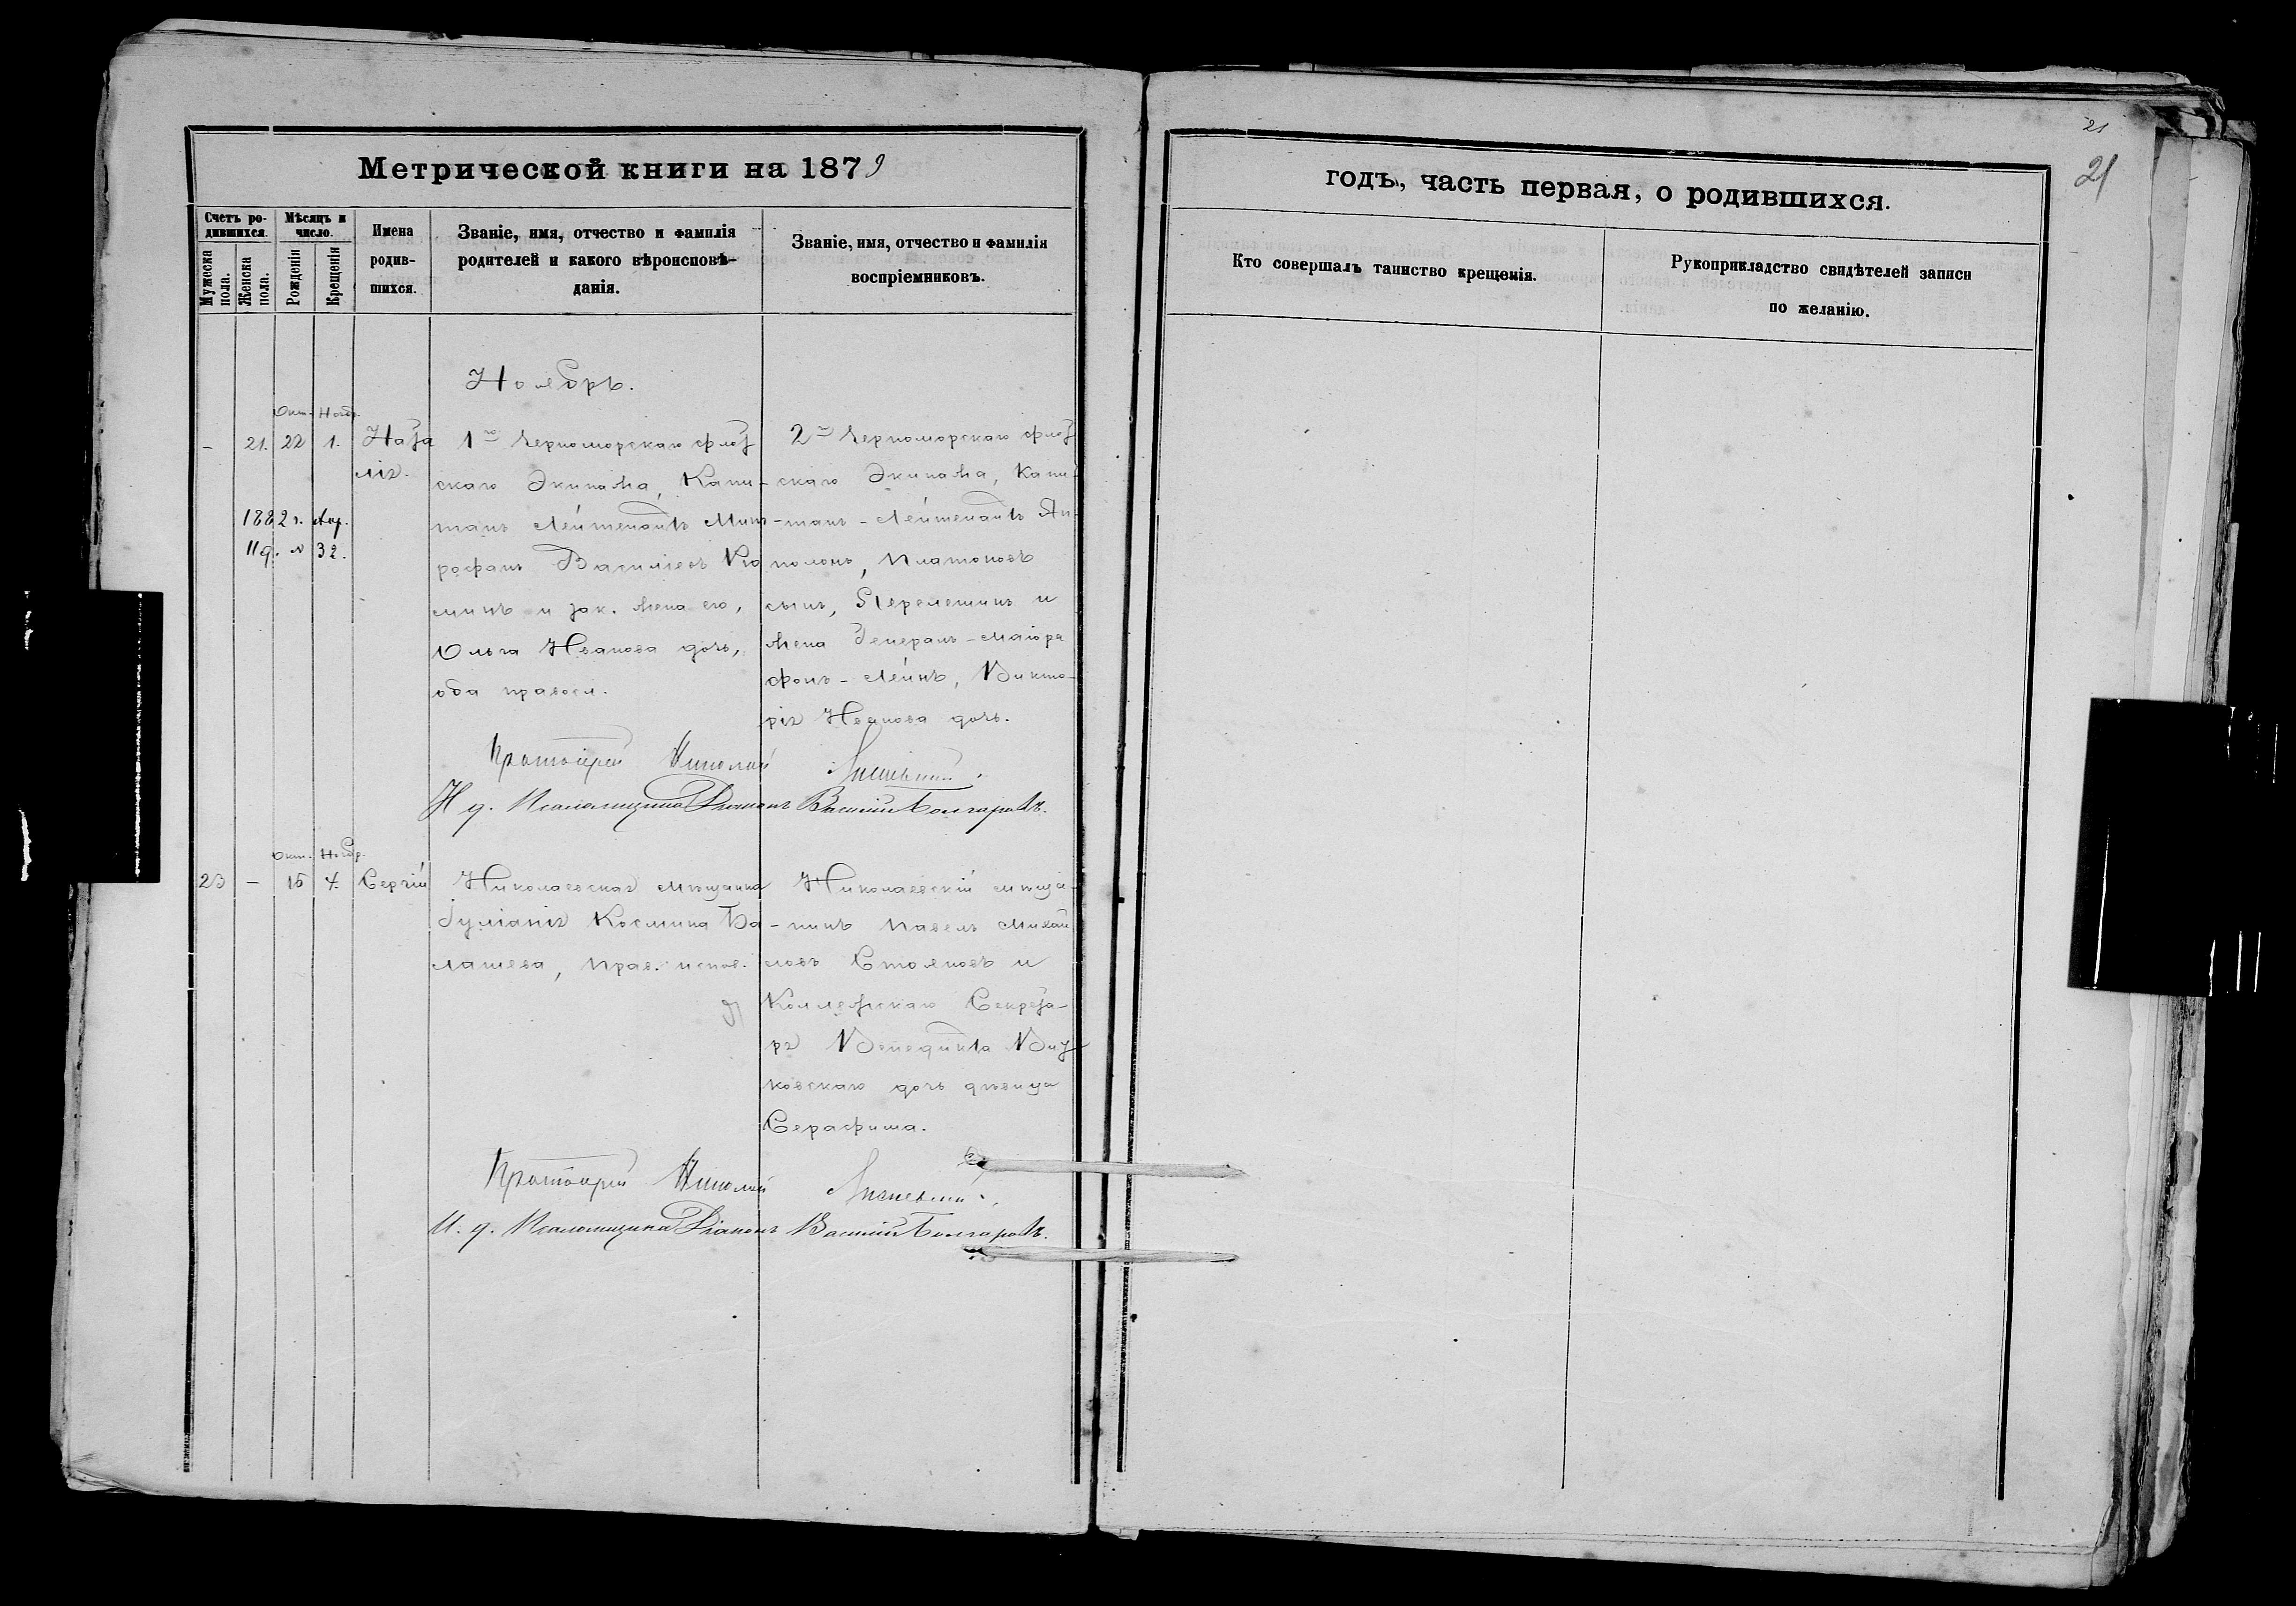 Метрической книги на 1879
годъ, часть первая, о родившихся.
21
21
Счетъ ро-
дившихся.
Мѣсяцъ и
число.
Имена
родив-
шихся.
Званіе, имя, отчество и фамилія
родителей и какого вѣроисповѣ-
данія.
Званіе, имя, отчество и фамилія
воспріемниковъ.
Мужеска
пола.
Женска
пола.
Рожденія
Крещенія
Кто совершалъ таинство крещенія.
Рукоприкладство свидѣтелей записи
по желанію.
Ноябрь.
Окт. Нояб.
- 21. 22 1. Ната
лія.
1882 г. Апр.
11 д. № 32.
1го Черноморскаго флот
скаго Экипажа, Капи-
танъ Лейтенантъ Мит
рофанъ Василіевъ Ко
минъ и зак. жена его,
Ольга Иванова дочь,
оба правосл.
2го Черноморскаго флот
скаго Экипажа, Капи-
-танъ-Лейтенантъ Ап-
полонъ, Платоновъ
сынъ, Перелешинъ и
жена Генералъ-Маіора
фонъ-Лейнъ, Викто-
рія Иванова дочь.
Протоіерей Николай
И. д. Псаломщика Діаконъ Василій Болгаровъ.
Окт. Нояб.
23 - 15 4. Сергій
Николаевская мѣщанка
Іуліанія Космина Ба
лашева, прав. испов.
Николаевскій мѣща-
-нинъ Павелъ Михай
ловъ Стояновъ и
Коллежскаго Секрета-
ря Венедикта Вит
ковскаго дочь дѣвица
Серафима.
Протоіерей Николай
И. д. Псаломщика Діаконъ Василій Болгаровъ.